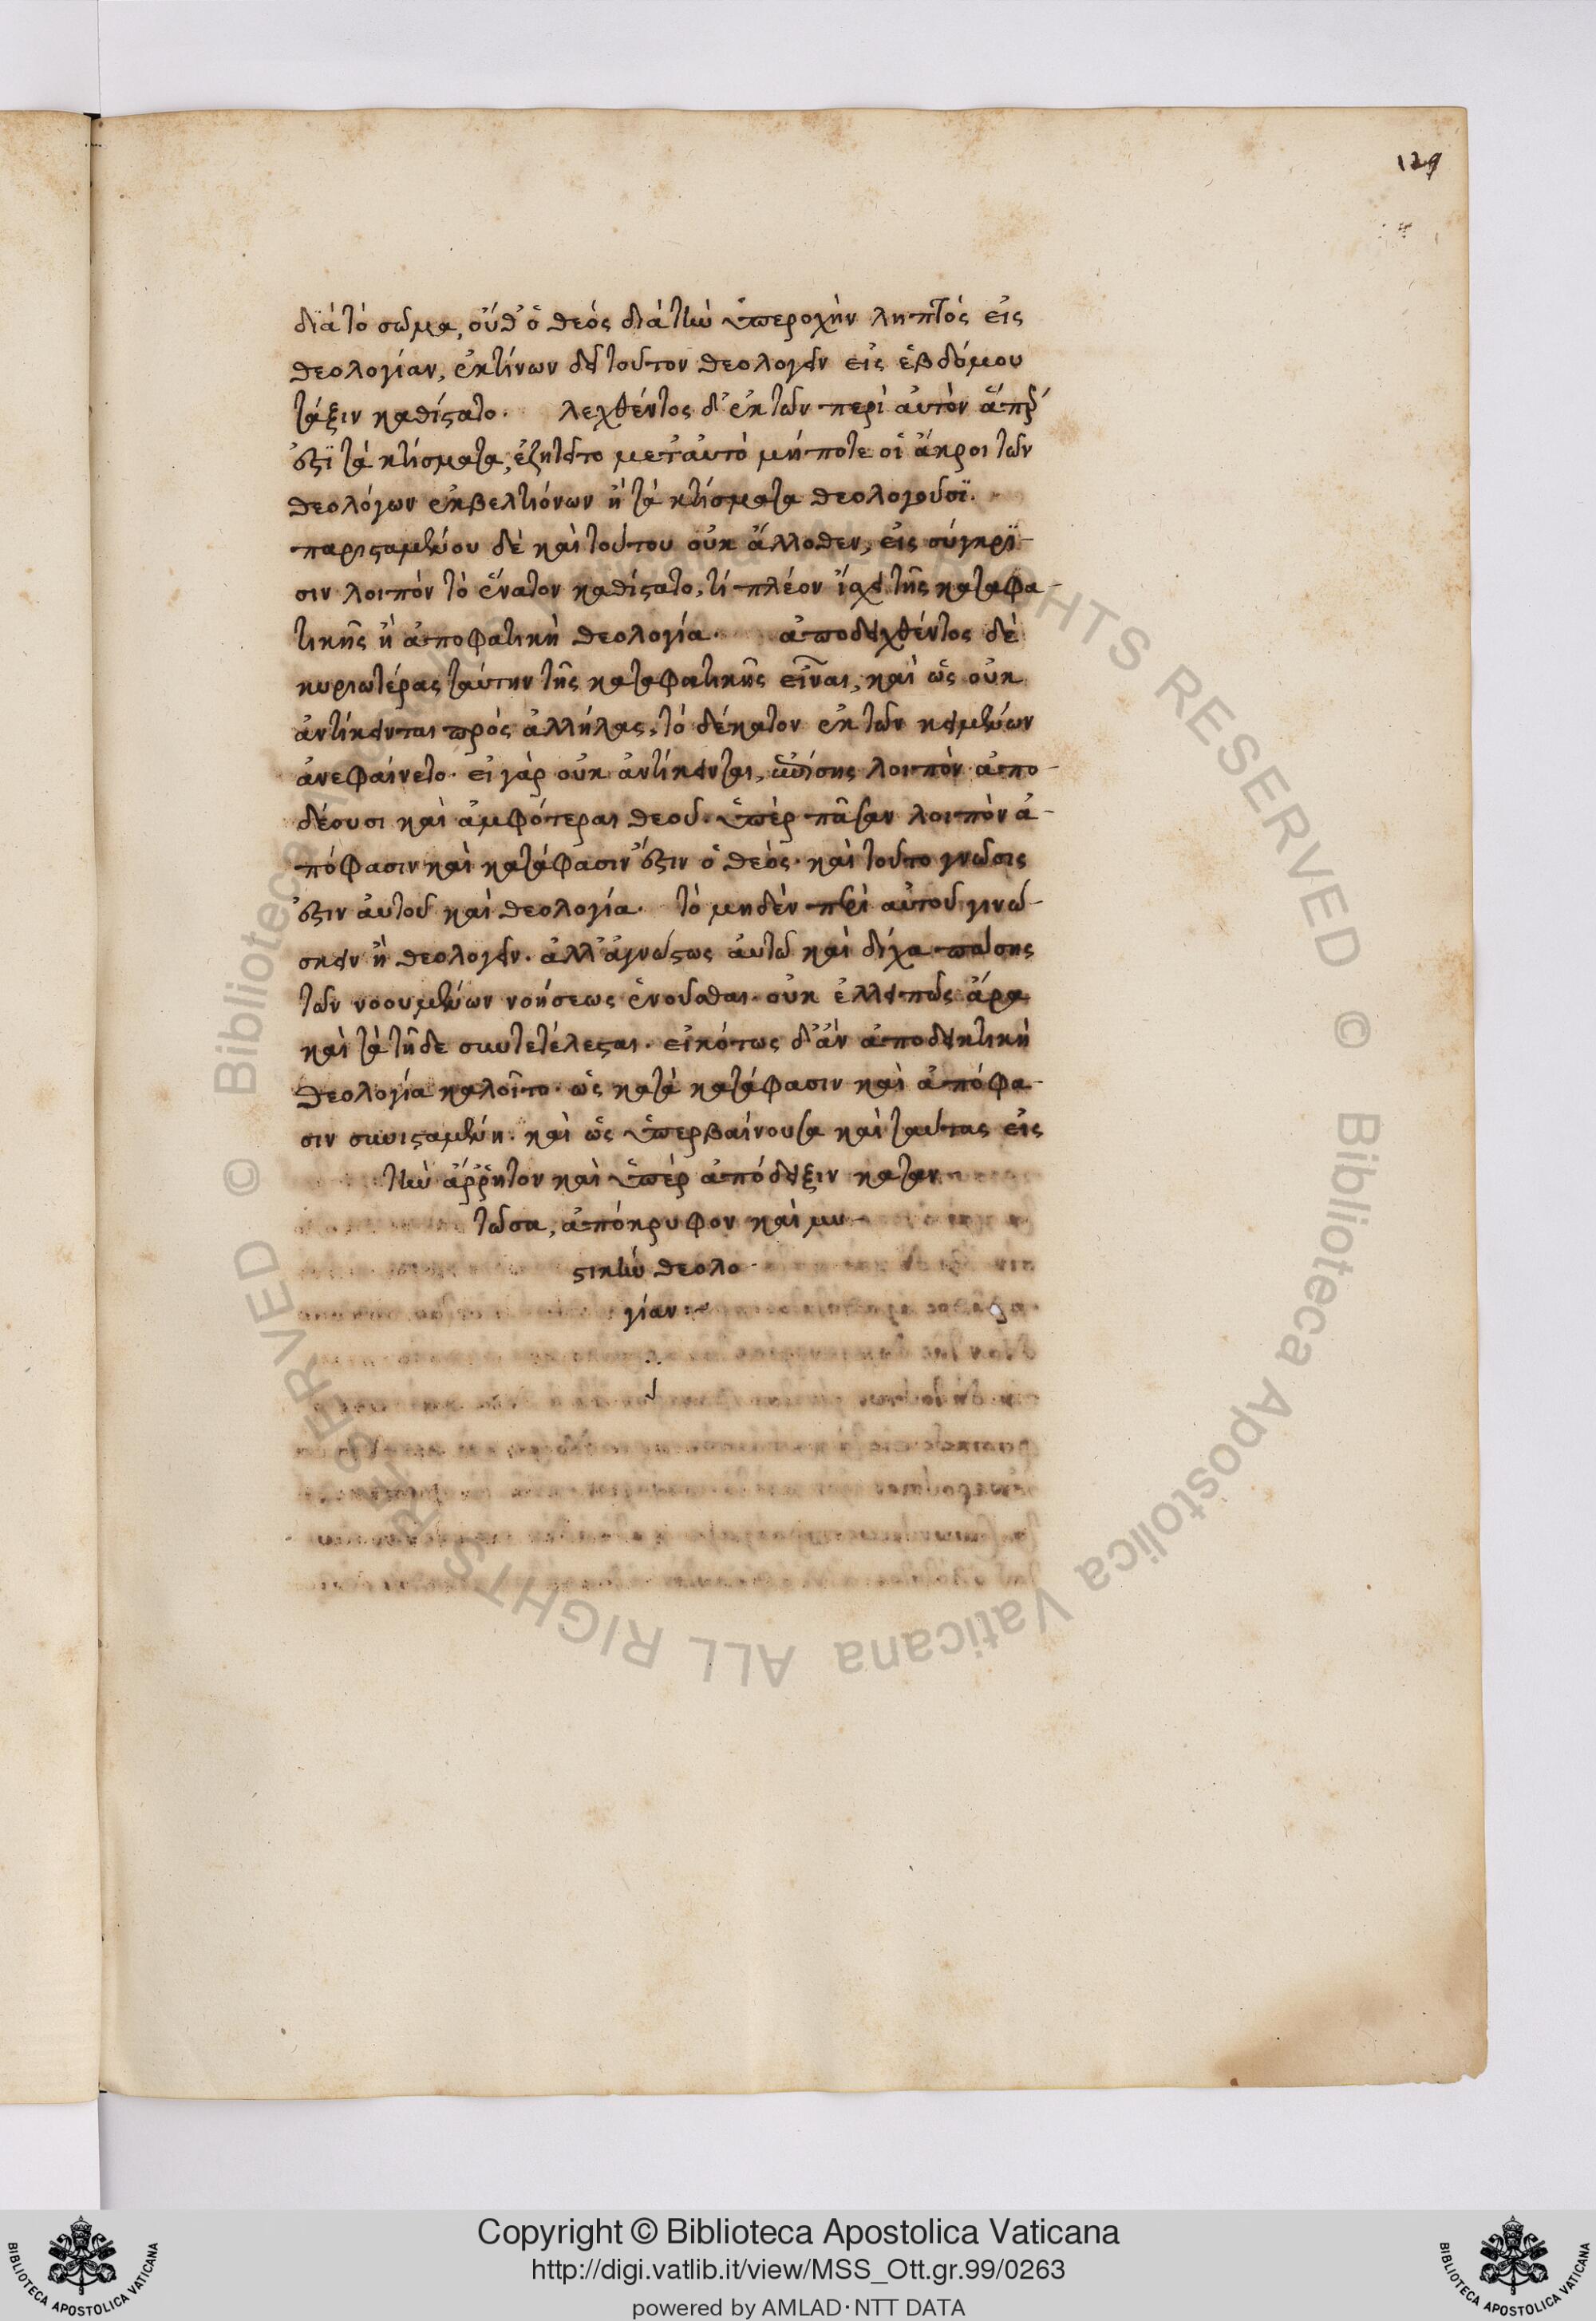 129
διὰ τὸ σῶμα, οὔθ' ὁ θεὸς διὰ τὴν ὑπεροχὴν ληπτὸς εἰς
θεολογίαν, ἐκ τίνων δεῖ τοῦτον θεολογεῖν εἰς ἑβδόμου
τάξιν καθίστατο. λεχθέντος δ' ἐκ τῶν περὶ αὐτὸν ἅπερ
ἐστὶ τὰ κτίσματα, ἐζητεῖτο μετ' αὐτὸ μήποτε οἱ ἄκροι τῶν
θεολόγων ἐκ βελτιόνων ἢ τὰ κτίσματα θεολογοῦσι.
παρισταμένου δὲ καὶ τούτου οὐκ ἄλλοθεν, εἰς σύγκρι-
σιν λοιπὸν τὸ ἔνατον καθίστατο, τί πλέον ἴσχει τῆς καταφα-
τικῆς ἡ ἀποφατικὴ θεολογία. ἀποδειχθέντος δὲ
κυριωτέρας ταύτην τῆς καταφατικῆς εἶναι, καὶ ὡς οὐκ
ἀντίκεινται πρὸς ἀλλήλας, τὸ δέκατον ἐκ τῶν κειμένων
ἀνεφαίνετο. εἰ γὰρ οὐκ ἀντίκεινται, ἐπίσης λοιπὸν ἀπο-
δέουσι καὶ ἀμφότεραι θεοῦ. ὑπὲρ πᾶσαν λοιπὸν ἀ-
πόφασιν καὶ κατάφασιν ἐστιν ὁ θεός. καὶ τοῦτο γνῶσις
ἐστιν αὐτοῦ καὶ θεολογία. τὸ μηδὲν περὶ αὐτοῦ γινώ-
σκειν ἢ θεολογεῖν. ἀλλ' ἀγνώστως αὐτῷ καὶ δίχα πάσης
τῶν νοουμένων νοήσεως ἑνοῦσθαι. οὐκ ἐλλειπῶς ἄρα
καὶ τὰ τῇδε συντετέλεσται. εἰκότως δ' ἂν ἀποδεικτικὴ
θεολογία καλοῖτο. ὡς κατὰ κατάφασιν καὶ ἀπόφα-
σιν συνισταμένη. καὶ ὡς ὑπερβαίνουσα καὶ ταύτας εἰς
τὴν ἄρρητον καὶ ὑπὲρ ἀπόδειξιν καταν
τῶσα, ἀπόκρυφον καὶ μυ-
στικὴν θεολο
γίαν:~
© Biblioteca Apostolica Vaticana ALL RIGHTS RESERVED
Copyright © Biblioteca Apostolica Vaticana
http://digi.vatlib.it/view/MSS_Ott.gr.99/0263
powered by AMLAD·NTT DATA
BIBLIOTECA APOSTOLICA VATICANA
BIBLIOTECA APOSTOLICA VATICANA